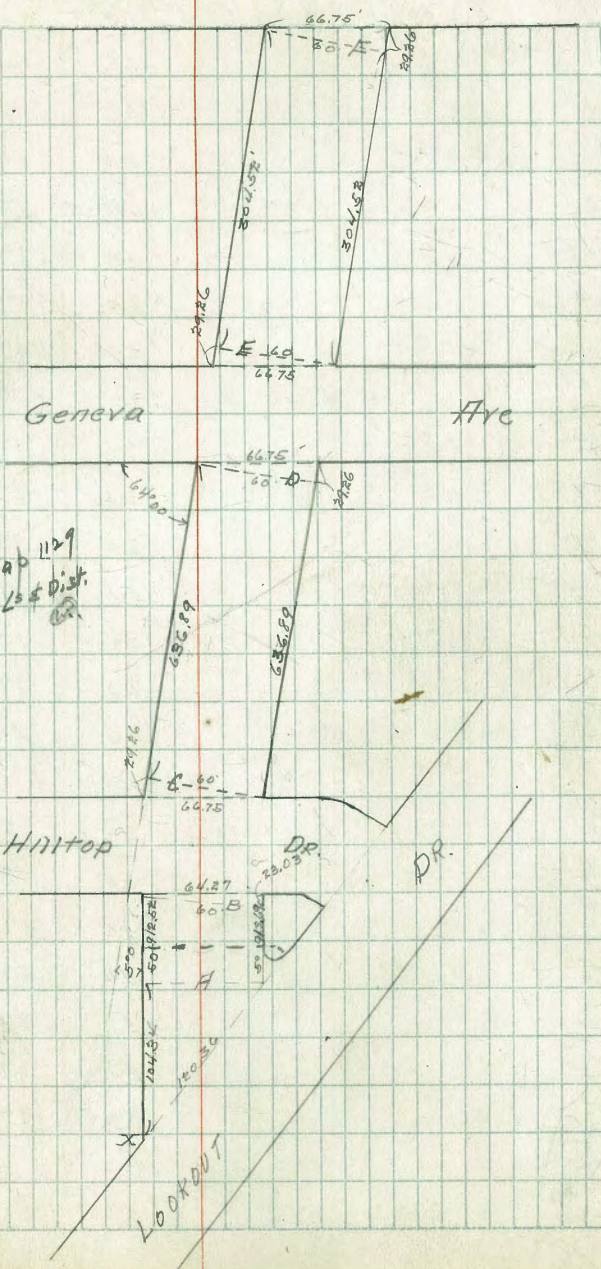 66.75'
60 E
29.26
304.52'
304.52
29.26
E 60
66.75
Geneva Ave
66.75'
60 D
29.26
64°00
1129
Ls & Dist.
636.89
636.89
29.26
C 60'
66.75
Hilltop DR.
DR.
23.03
64.27
60 B
50
12.52
50
A
104.34
120.36
X
LOOKOUT